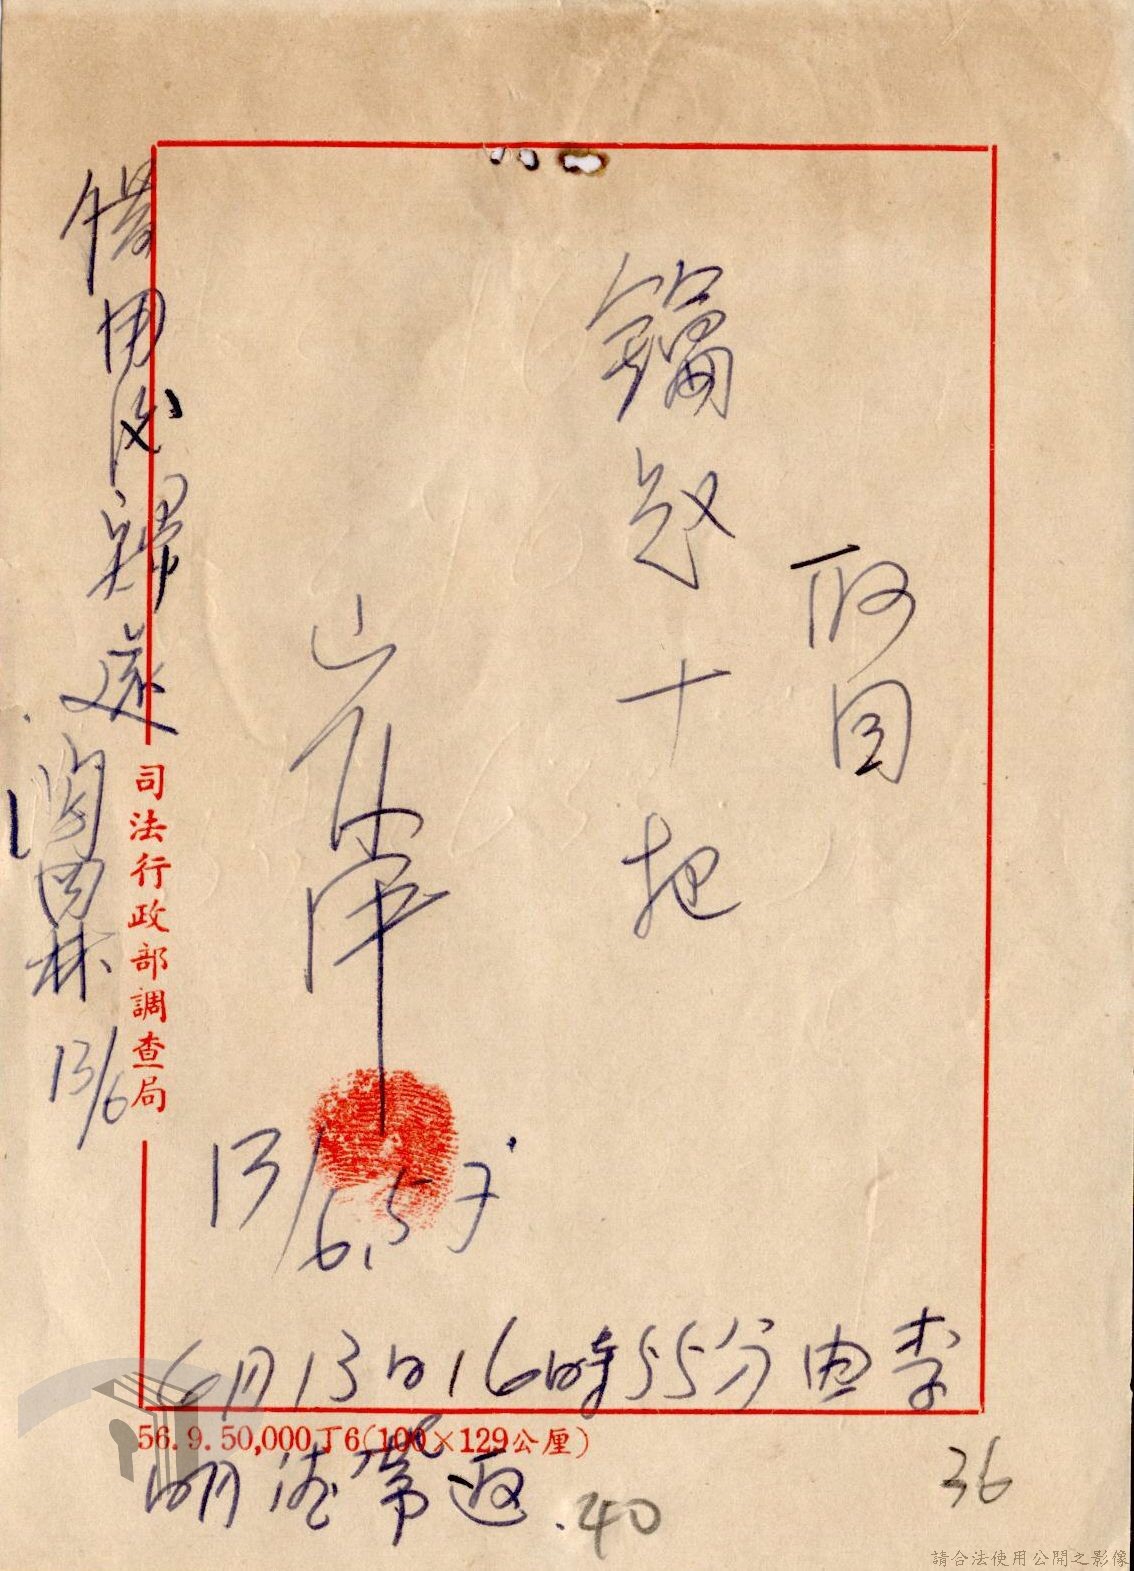 取回
鑰匙十把
13/6.5分
借用後歸還
13/6
司法行政部調查局
6月13日16時55分由李
明德帶返
56.9.50,000丁6(100×129公厘)
40
36
請合法使用公開之影像